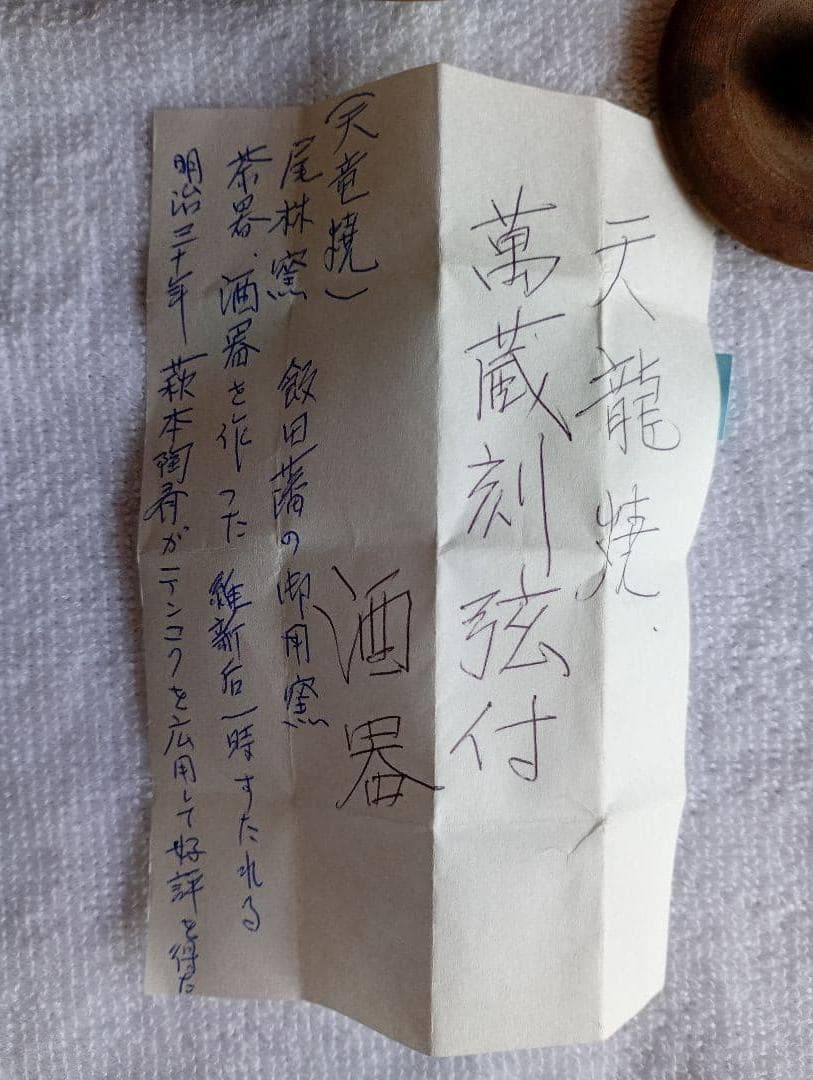 天龍焼.
萬蔵刻弦付
酒器
(天竜焼)
尾林窯 飯田藩の御用窯
茶器、酒器を作った 維新后一時すたれる
明治三十年 萩本陶斉がテンコクを広用して好評を得た